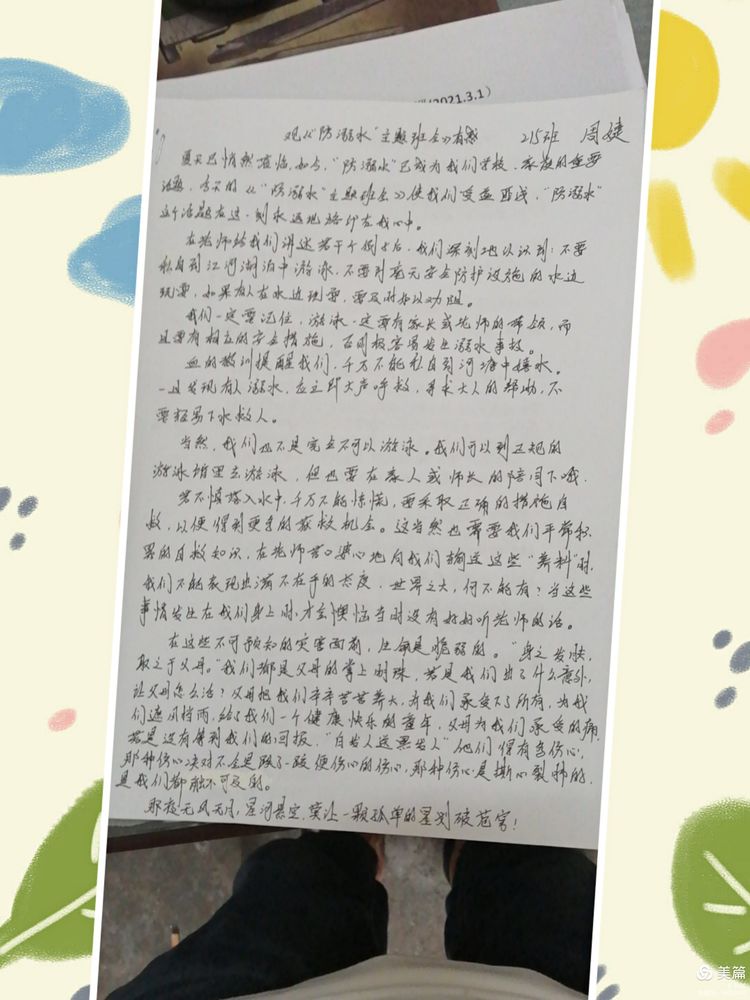 (2021.3.1)
观《“防溺水”主题班会》有感 215班 周婕
夏天已悄然降临,如今,“防溺水”已成为我们学校、家庭的重要
话题,今天的《“防溺水”主题班会》使我们受益匪浅,“防溺水”
这个话题在这一刻永远地烙印在我心中。
在老师给我们讲述若干个例子后,我们深刻地认识到:不要
私自到江河湖泊中游泳,不要到有无安全防护设施的水边
玩耍,如果有人在水边玩耍,要及时加以劝阻。
我们一定要记住,游泳一定要有家长或老师的带领,而
且要有相应的安全措施,否则极容易发生溺水事故。
血的教训提醒我们,千万不能私自到河塘中嬉水。
一旦发现有人溺水,应立即大声呼救,寻求大人的帮助,不
要轻易下水救人。
当然,我们也不是完全不可以游泳。我们可以到正规的
游泳馆里去游泳,但也要在家人或师长的陪同下哦。
若不慎落入水中,千万不能惊慌,要采取正确的措施自
救,以便得到更多的获救机会。这当然也需要我们平常积
累的自救知识,在老师苦口婆心地向我们输送这些“养料”时,
我们不能表现出满不在乎的态度,世界之大,何不能有?当这些
事情发生在我们身上时,才会懊恼当时没有好好听老师的话。
在这些不可预知的灾害面前,生命是脆弱的。“身之发肤,
取之于父母。”我们都是父母的掌上明珠,若是我们出了什么意外,
让父母怎么活?父母把我们辛辛苦苦养大,为我们承受不了所有,为我
们遮风挡雨,给了我们一个健康快乐的童年,父母为我们承受的痛,
若是没有等到我们的回报,“白发人送黑发人”他们得有多伤心,
那种伤心决对不会是跌了一跤便伤心的伤心,那种伤心是撕心裂肺的,
是我们都触不可及的。
那夜无风无月,星河悬空,莫让一颗孤单的星划破苍穹!
美篇